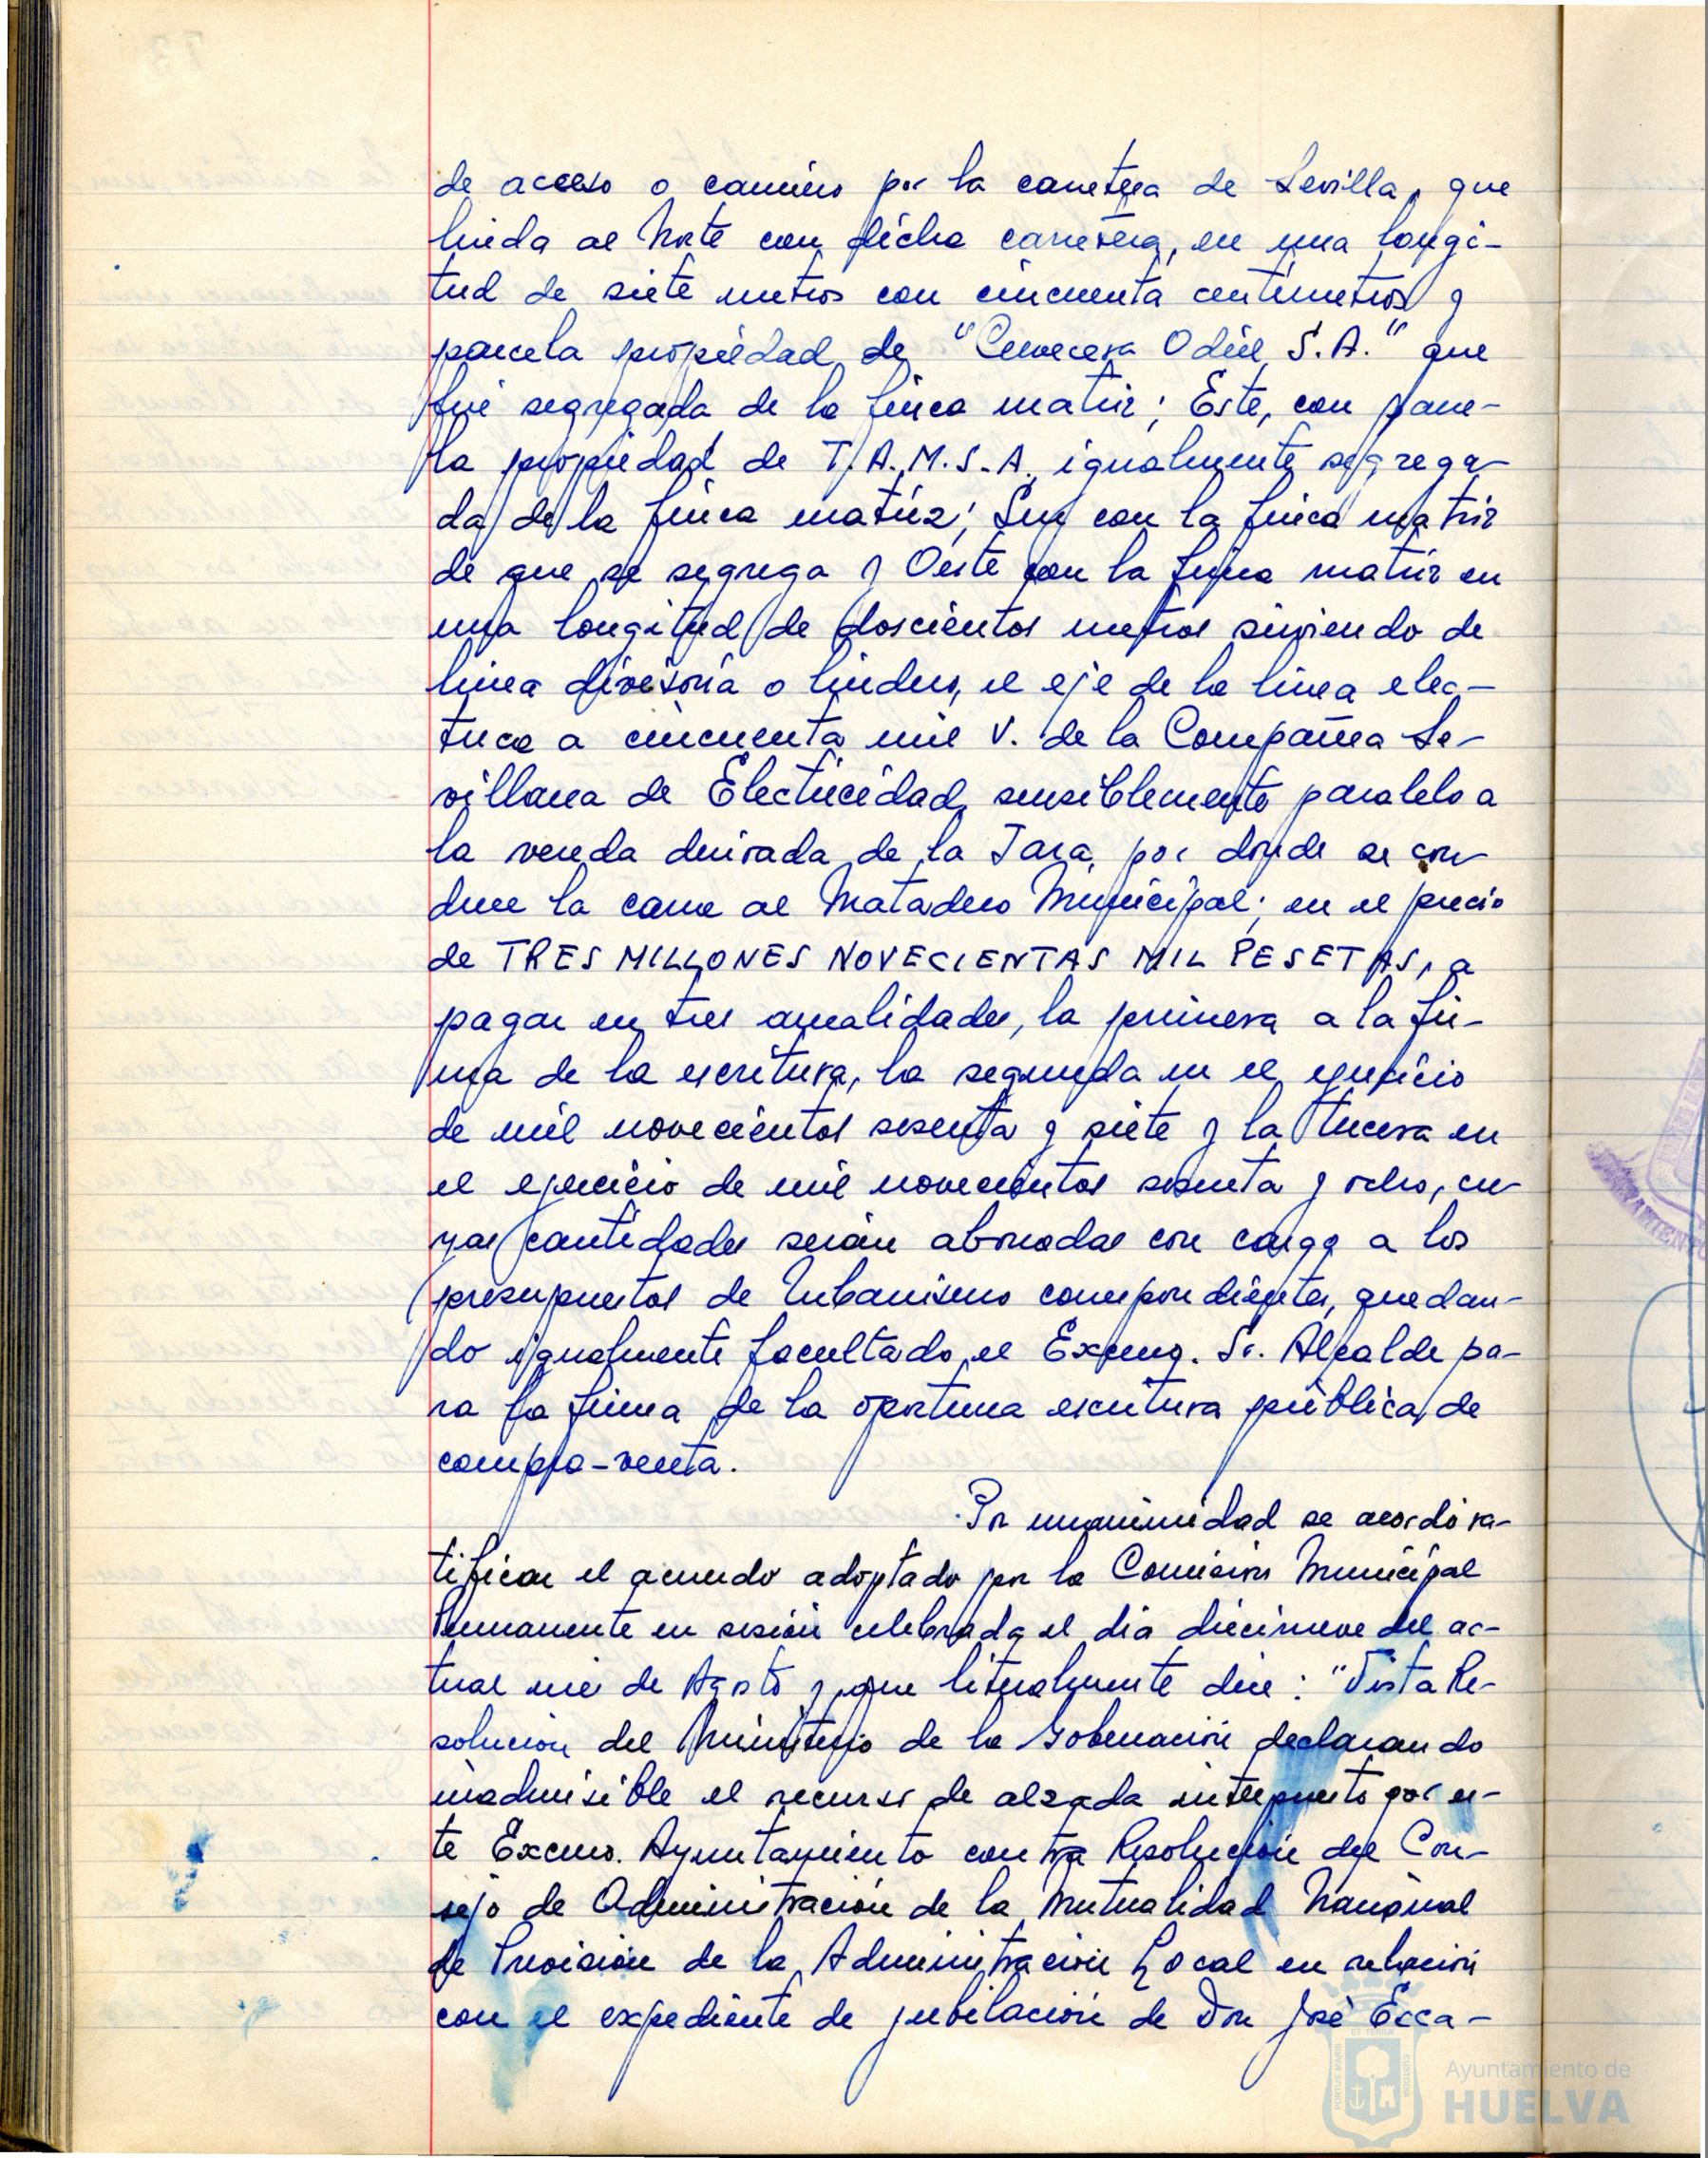 de acceso o camino por la carretera de Sevilla, que
linda al Norte con dicha carretera, en una longi-
tud de siete metros con cincuenta centímetros y
parcela propiedad de "Cervecera Odiel S.A." que
fué segregada de la finca matriz; Este, con parce-
la propiedad de T.A.M.S.A. igualmente segrega-
da de la finca matriz; Sur con la finca matriz
de que se segrega y Oeste con la finca matriz en
una longitud de doscientos metros sirviendo de
línea divisoria o lindero, el eje de la línea elec-
trica a cincuenta mil V. de la Compañía Se-
villana de Electricidad, sensiblemente paralelo a
la vereda denominada de la Jara, por donde se con-
duce la carne al Matadero Municipal; en el precio
de TRES MILLONES NOVECIENTAS MIL PESETAS, a
pagar en tres anualidades, la primera a la fir-
ma de la escritura, la segunda en el ejercicio
de mil novecientos sesenta y siete y la tercera en
el ejercicio de mil novecientos sesenta y ocho, cu-
yas cantidades serán abonadas con cargo a los
presupuestos de Urbanismo correspondientes, quedan-
do igualmente facultado el Excmo. Sr. Alcalde pa-
ra la firma de la oportuna escritura pública de
compra-venta.
Por unanimidad se acordó ra-
tificar el acuerdo adoptado por la Comisión Municipal
Permanente en sesión celebrada el día diecinueve del ac-
tual mes de Agosto y que literalmente dice: "Vista Re-
solución del Ministerio de la Gobernación declarando
inadmisible el recurso de alzada interpuesto por es-
te Excmo. Ayuntamiento contra Resolución del Con-
sejo de Administración de la Mutualidad Nacional
de Previsión de la Administración Local en relación
con el expediente de jubilación de Don José Ecca-
Ayuntamiento de
HUELVA